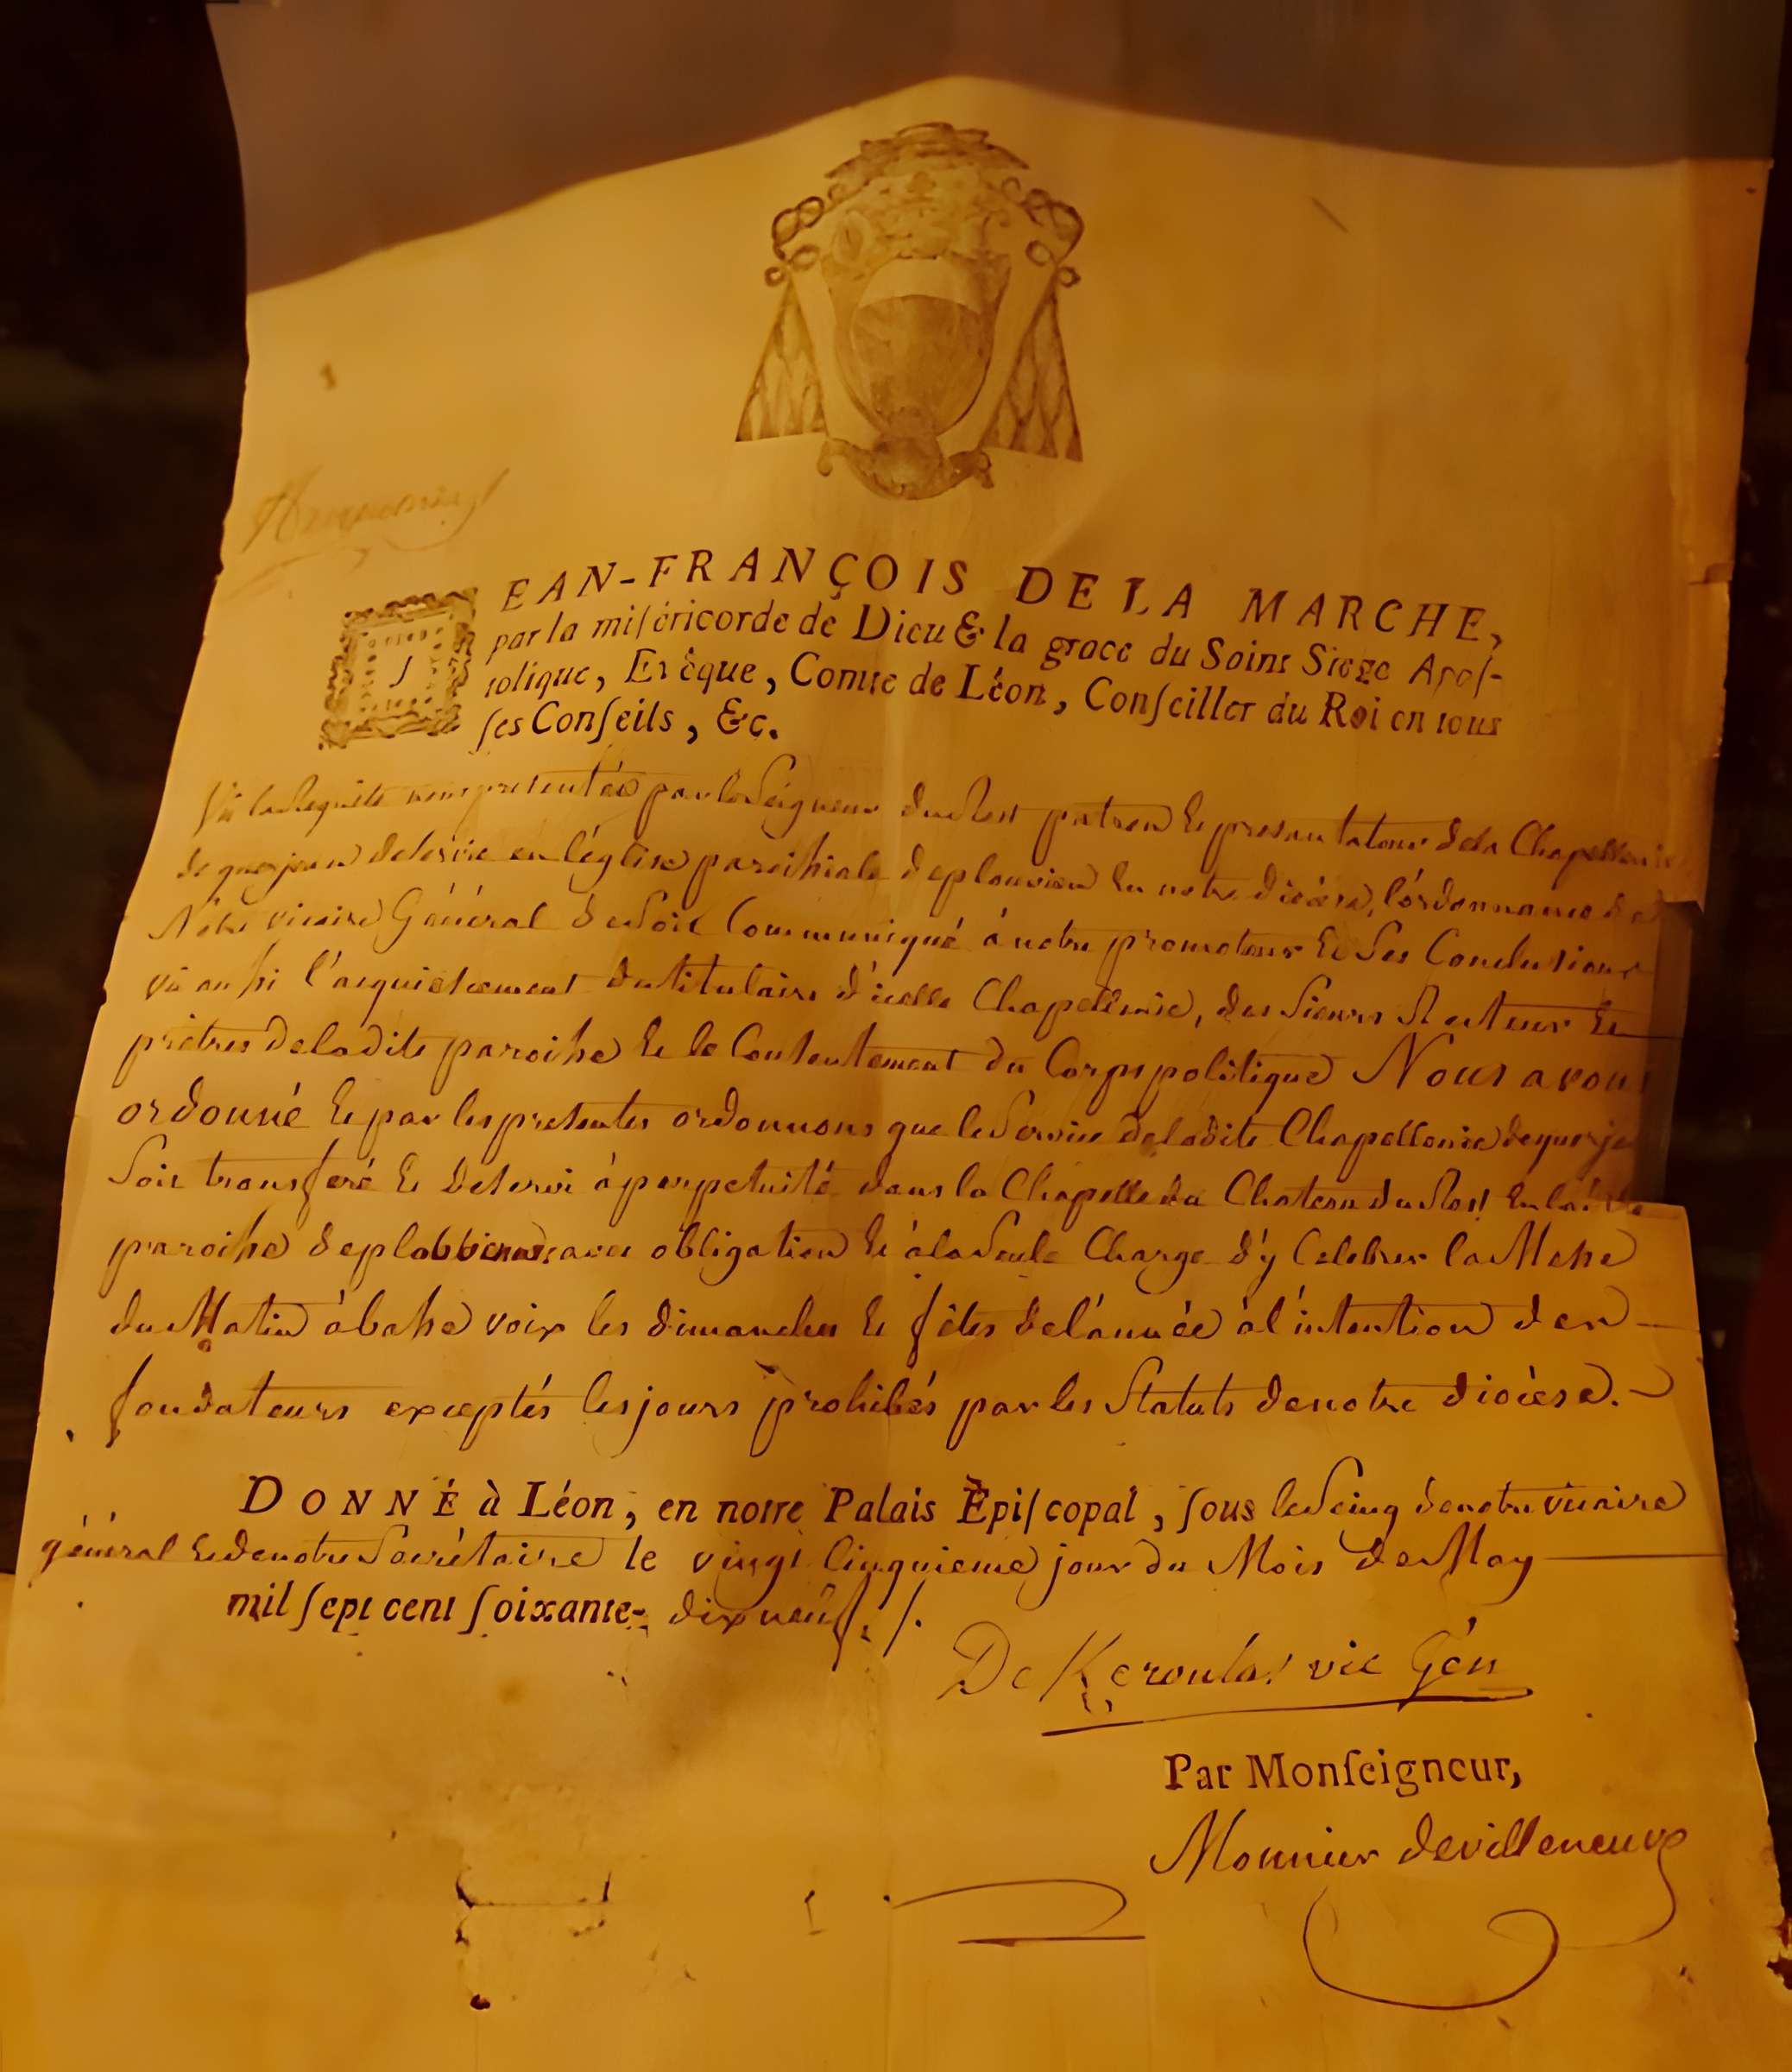 JEAN-FRANÇOIS DE LA MARCHE,
par la miſéricorde de Dieu & la grace du Saint Siege Apoſ-
tolique, Evêque, Comte de Léon, Conſeiller du Roi en tous
ſes Conſeils, &c.
Vû la Requête nous presentée par le Seigneur du Rest patron et presentateur de la Chapellenie
de querjean deservie en l'église paroissiale de plouvien en notre diocèse, l'ordonnance de
Nôtre vicaire Général de soit Communiqué à notre promoteur et ses Conclusions
vû aussi l'acquiescement du titulaire d'icelle Chapellenie, des Sieurs Recteur et
prêtres de la dite paroisse et le Consentement du Corps politique Nous avons
ordonné et par les presentes ordonnons que le Service de la dite Chapellenie de querje
soit transferé et deservi à perpetuité dans la Chapelle du Chateau du Rest en la dite
paroisse de plabbennec avec obligation et à la Seule Charge d'y Celebrer la Messe
du Matin à basse voix les dimanches et fêtes de l'année à l'intention des
fondateurs exceptés les jours prohibés par les Statuts de notre diocèse.
DONNÉ à Léon, en notre Palais Epiſcopal, ſous le Seing de notre vicaire
général et de notre Secrétaire le vingt Cinquieme jour du Mois de May
mil ſept cent ſoixante-dix neuf ./.
De Keroulas vic Gén
Par Monſeigneur,
Monnier de villeneuve